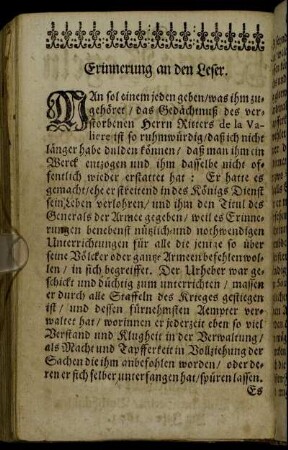 Erinnerung an den Leser.
MAn sol einem jeden geben/ was ihm zu-
gehöret/ das Gedächtnuß des ver-
storbenen Herrn Ritters de la Va-
liere ist so ruhmwürdig/ daß ich nicht
länger habe dulden können/ daß man ihm ein
Werck entzogen und ihm dasselbe nicht of-
fentlich wieder erstattet hat: Er hatte es
gemacht/ ehe er streitend in des Königs Dienst
sein Leben verlohren/ und ihm den Titul des
Generals der Armee gegeben/ weil es Erinne-
rungen benebenst nützlich und nothwendigen
Unterrichtungen für alle die jenige so über
seine Völcker oder gantze Armeen befehlen wol-
len/ in sich begreiffet. Der Urheber war ge-
schickt und düchtig zum unterrichten/ massen
er durch alle Staffeln des Krieges gestiegen
ist/ und dessen fürnehmsten Aempter ver-
waltet hat/ worinnen er jederzeit eben so viel
Verstand und Klugheit in der Verwaltung/
als Macht und Tapfferkeit in Vollziehung der
Sachen die ihm anbefohlen worden/ oder de-
ren er sich selber unterfangen hat/ spüren lassen.
Es